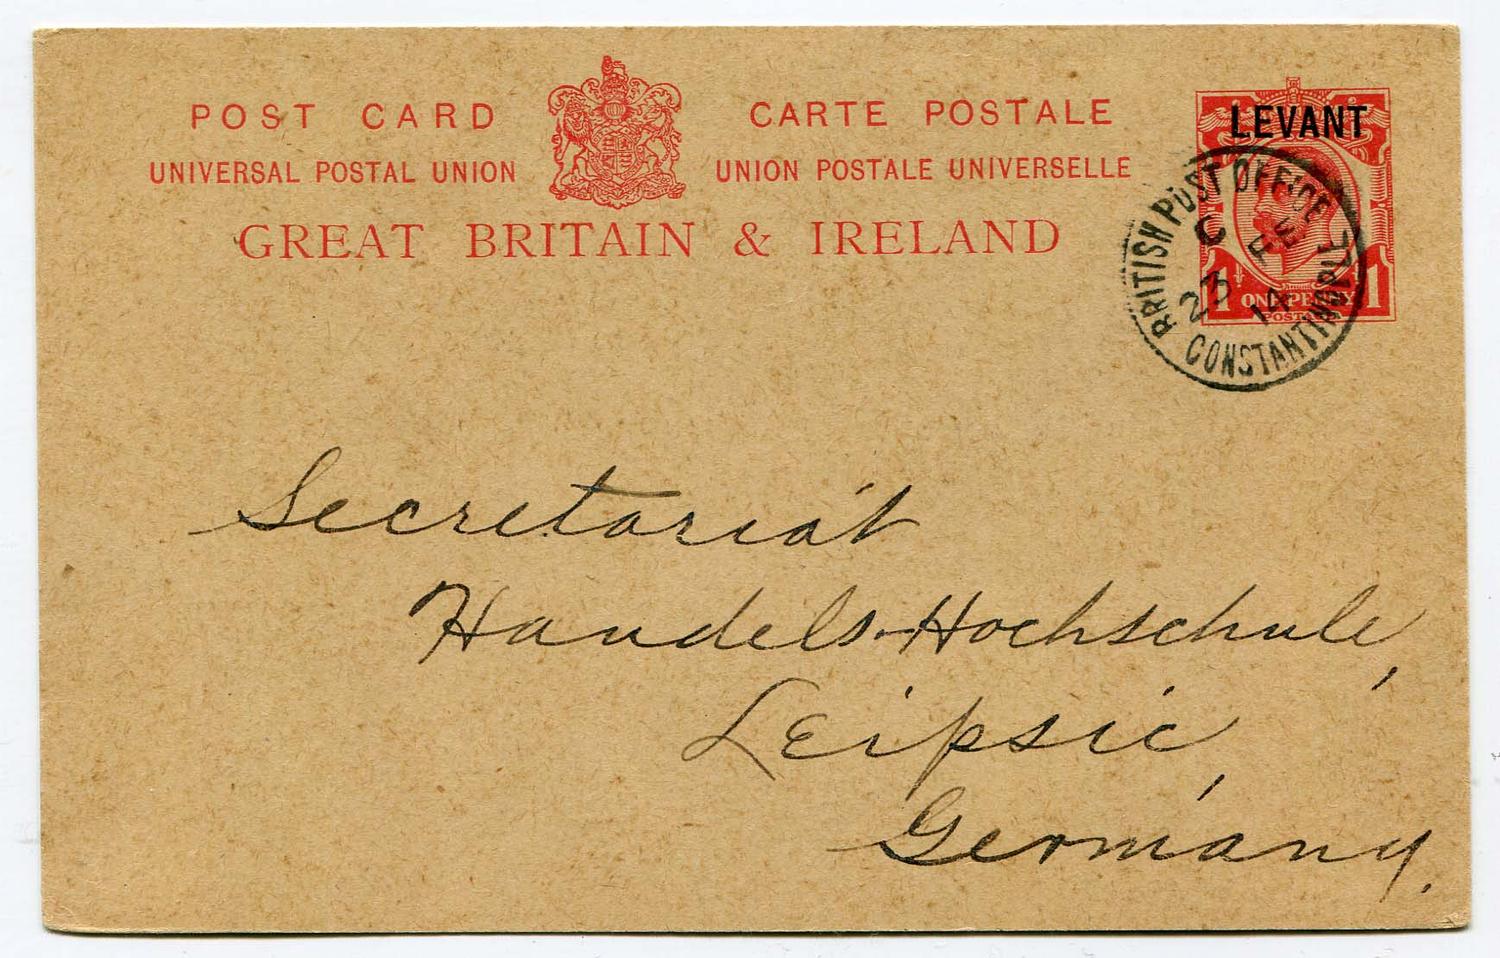 POST CARD CARTE POSTALE
UNIVERSAL POSTAL UNION UNION POSTALE UNIVERSELLE
GREAT BRITAIN & IRELAND
LEVANT
1 ONE PENNY 1
POSTAGE
BRITISH POST OFFICE
C
23 FE
14
CONSTANTINOPLE
Secretariát
Handels-Hochschule,
Leipsic,
Germany.